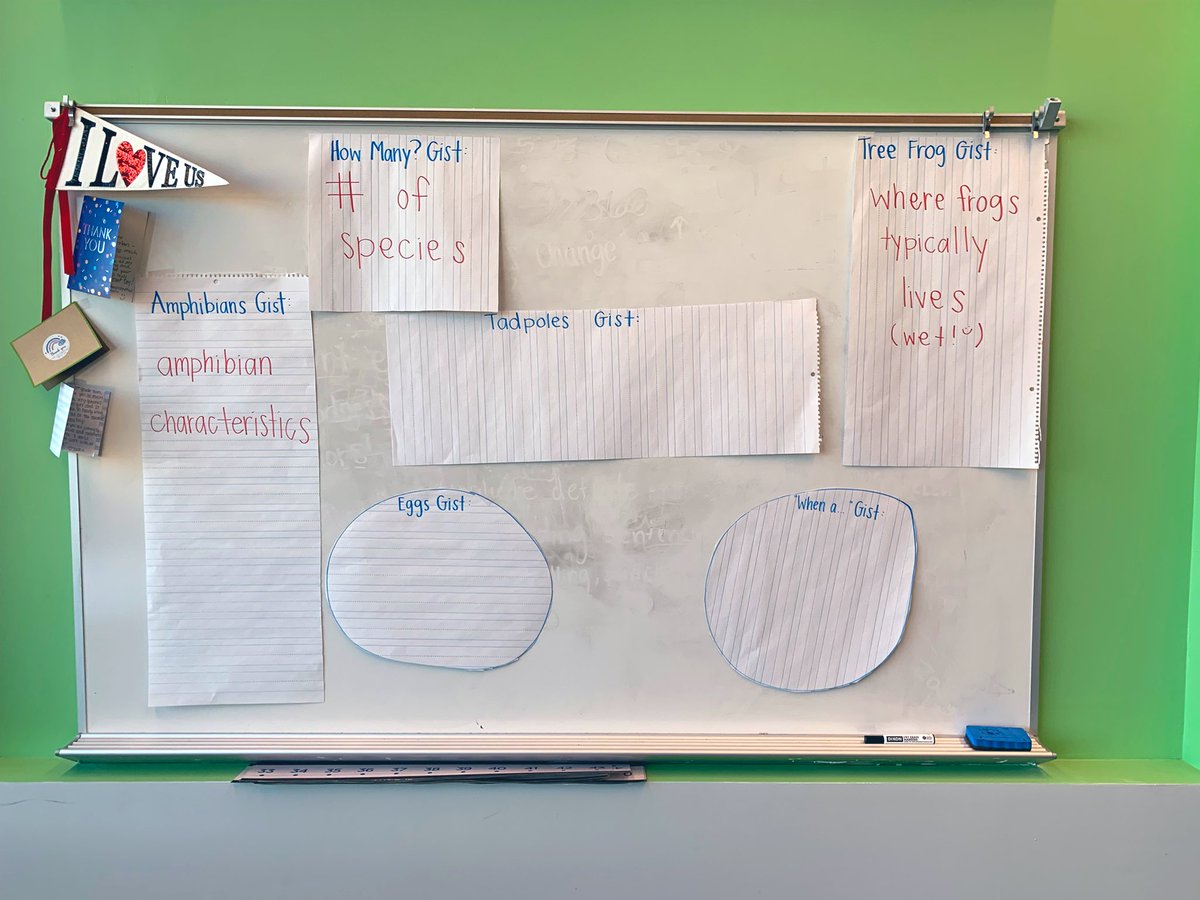 I LOVE US
THANK
YOU
How Many? Gist:
# of
species
Tree Frog Gist:
where frogs
typically
lives
(wet!)
Amphibians Gist:
amphibian
characteristics
Tadpoles Gist:
Orange
Eggs Gist:
"When a..." Gist:
33 34 35 36 37 38 39 40 41 42